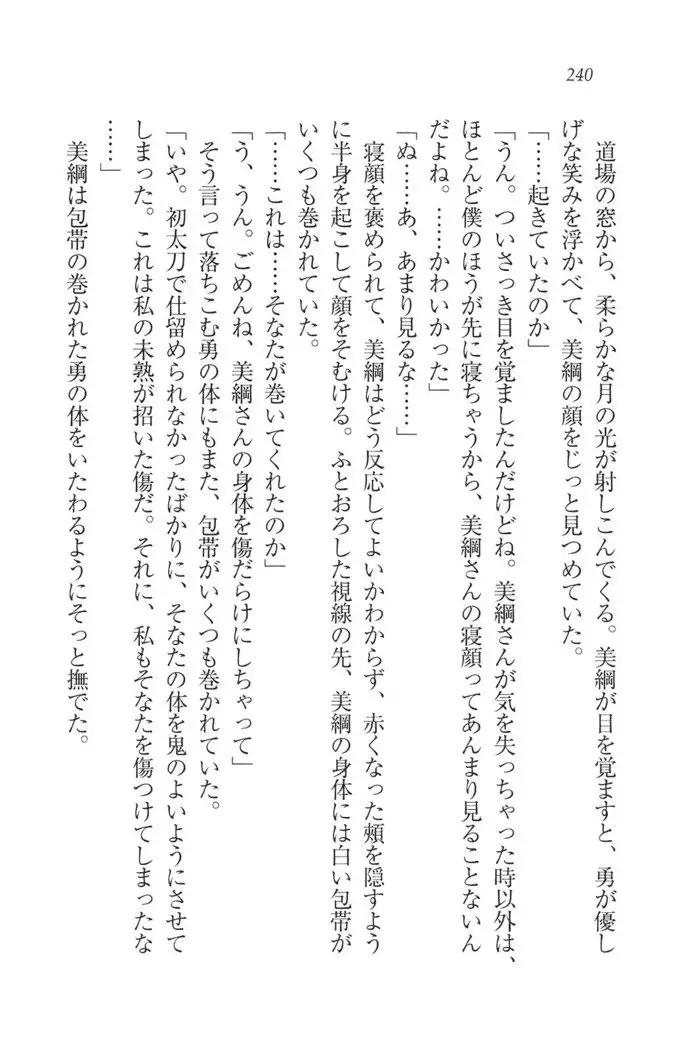 240
　道場の窓から、柔らかな月の光が射しこんでくる。美綱が目を覚ますと、勇が優し
げな笑みを浮かべて、美綱の顔をじっと見つめていた。
「……起きていたのか」
「うん。ついさっき目を覚ましたんだけどね。美綱さんが気を失っちゃった時以外は、
ほとんど僕のほうが先に寝ちゃうから、美綱さんの寝顔ってあんまり見ることないん
だよね。……かわいかった」
「ぬ……あ、あまり見るな……」
　寝顔を褒められて、美綱はどう反応してよいかわからず、赤くなった頰を隠すよう
に半身を起こして顔をそむける。ふとおろした視線の先、美綱の身体には白い包帯が
いくつも巻かれていた。
「……これは……そなたが巻いてくれたのか」
「う、うん。ごめんね、美綱さんの身体を傷だらけにしちゃって」
　そう言って落ちこむ勇の体にもまた、包帯がいくつも巻かれていた。
「いや。初太刀で仕留められなかったばかりに、そなたの体を鬼のよいようにさせて
しまった。これは私の未熟が招いた傷だ。それに、私もそなたを傷つけてしまったな
……」
　美綱は包帯の巻かれた勇の体をいたわるようにそっと撫でた。